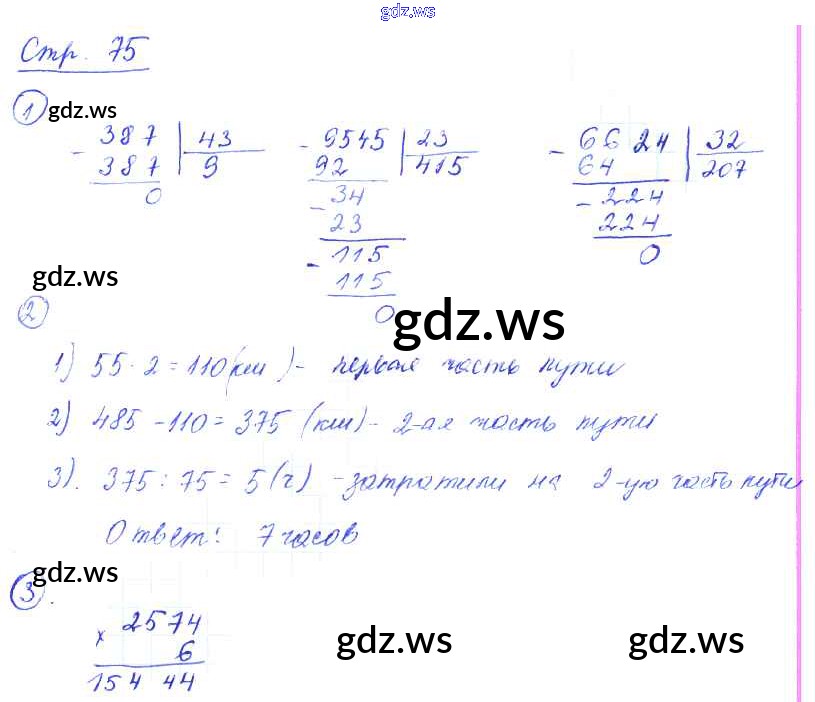 gdz.ws
Стр. 75
1 gdz.ws
- 387 | 43
387 9
0
- 9545 | 23
92 415
- 34
23
- 115
115
0
- 6624 | 32
64 207
- 224
224
0
gdz.ws
2
gdz.ws
1) 55 · 2 = 110 (км) - первая часть пути
2) 485 - 110 = 375 (км) - 2-ая часть пути
3). 375 : 75 = 5 (ч) - затратили на 2-ую часть пути
Ответ: 7 часов
gdz.ws
3.
× 2574
6
154 44
gdz.ws
gdz.ws